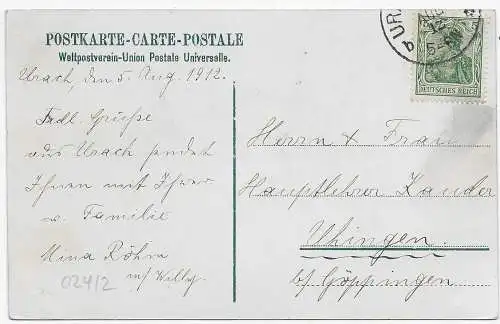 POSTKARTE-CARTE-POSTALE
Weltpostverein-Union Postale Universelle.
Urach, den 5. Aug. 1912.
Frdl. Grüße
aus Urach sendet
Ihnen mit Ihrer
w. Familie
Mina Röhm
m/ Willy.
024/2
URA
DEUTSCHES REICH
Herrn & Frau
Hauptlehrer Zander
Uhingen
b/ Göppingen